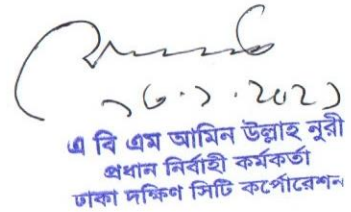 ১৬.১.২০২১
এ বি এম আমিন উল্লাহ নুরী
প্রধান নির্বাহী কর্মকর্তা
ঢাকা দক্ষিণ সিটি কর্পোরেশন